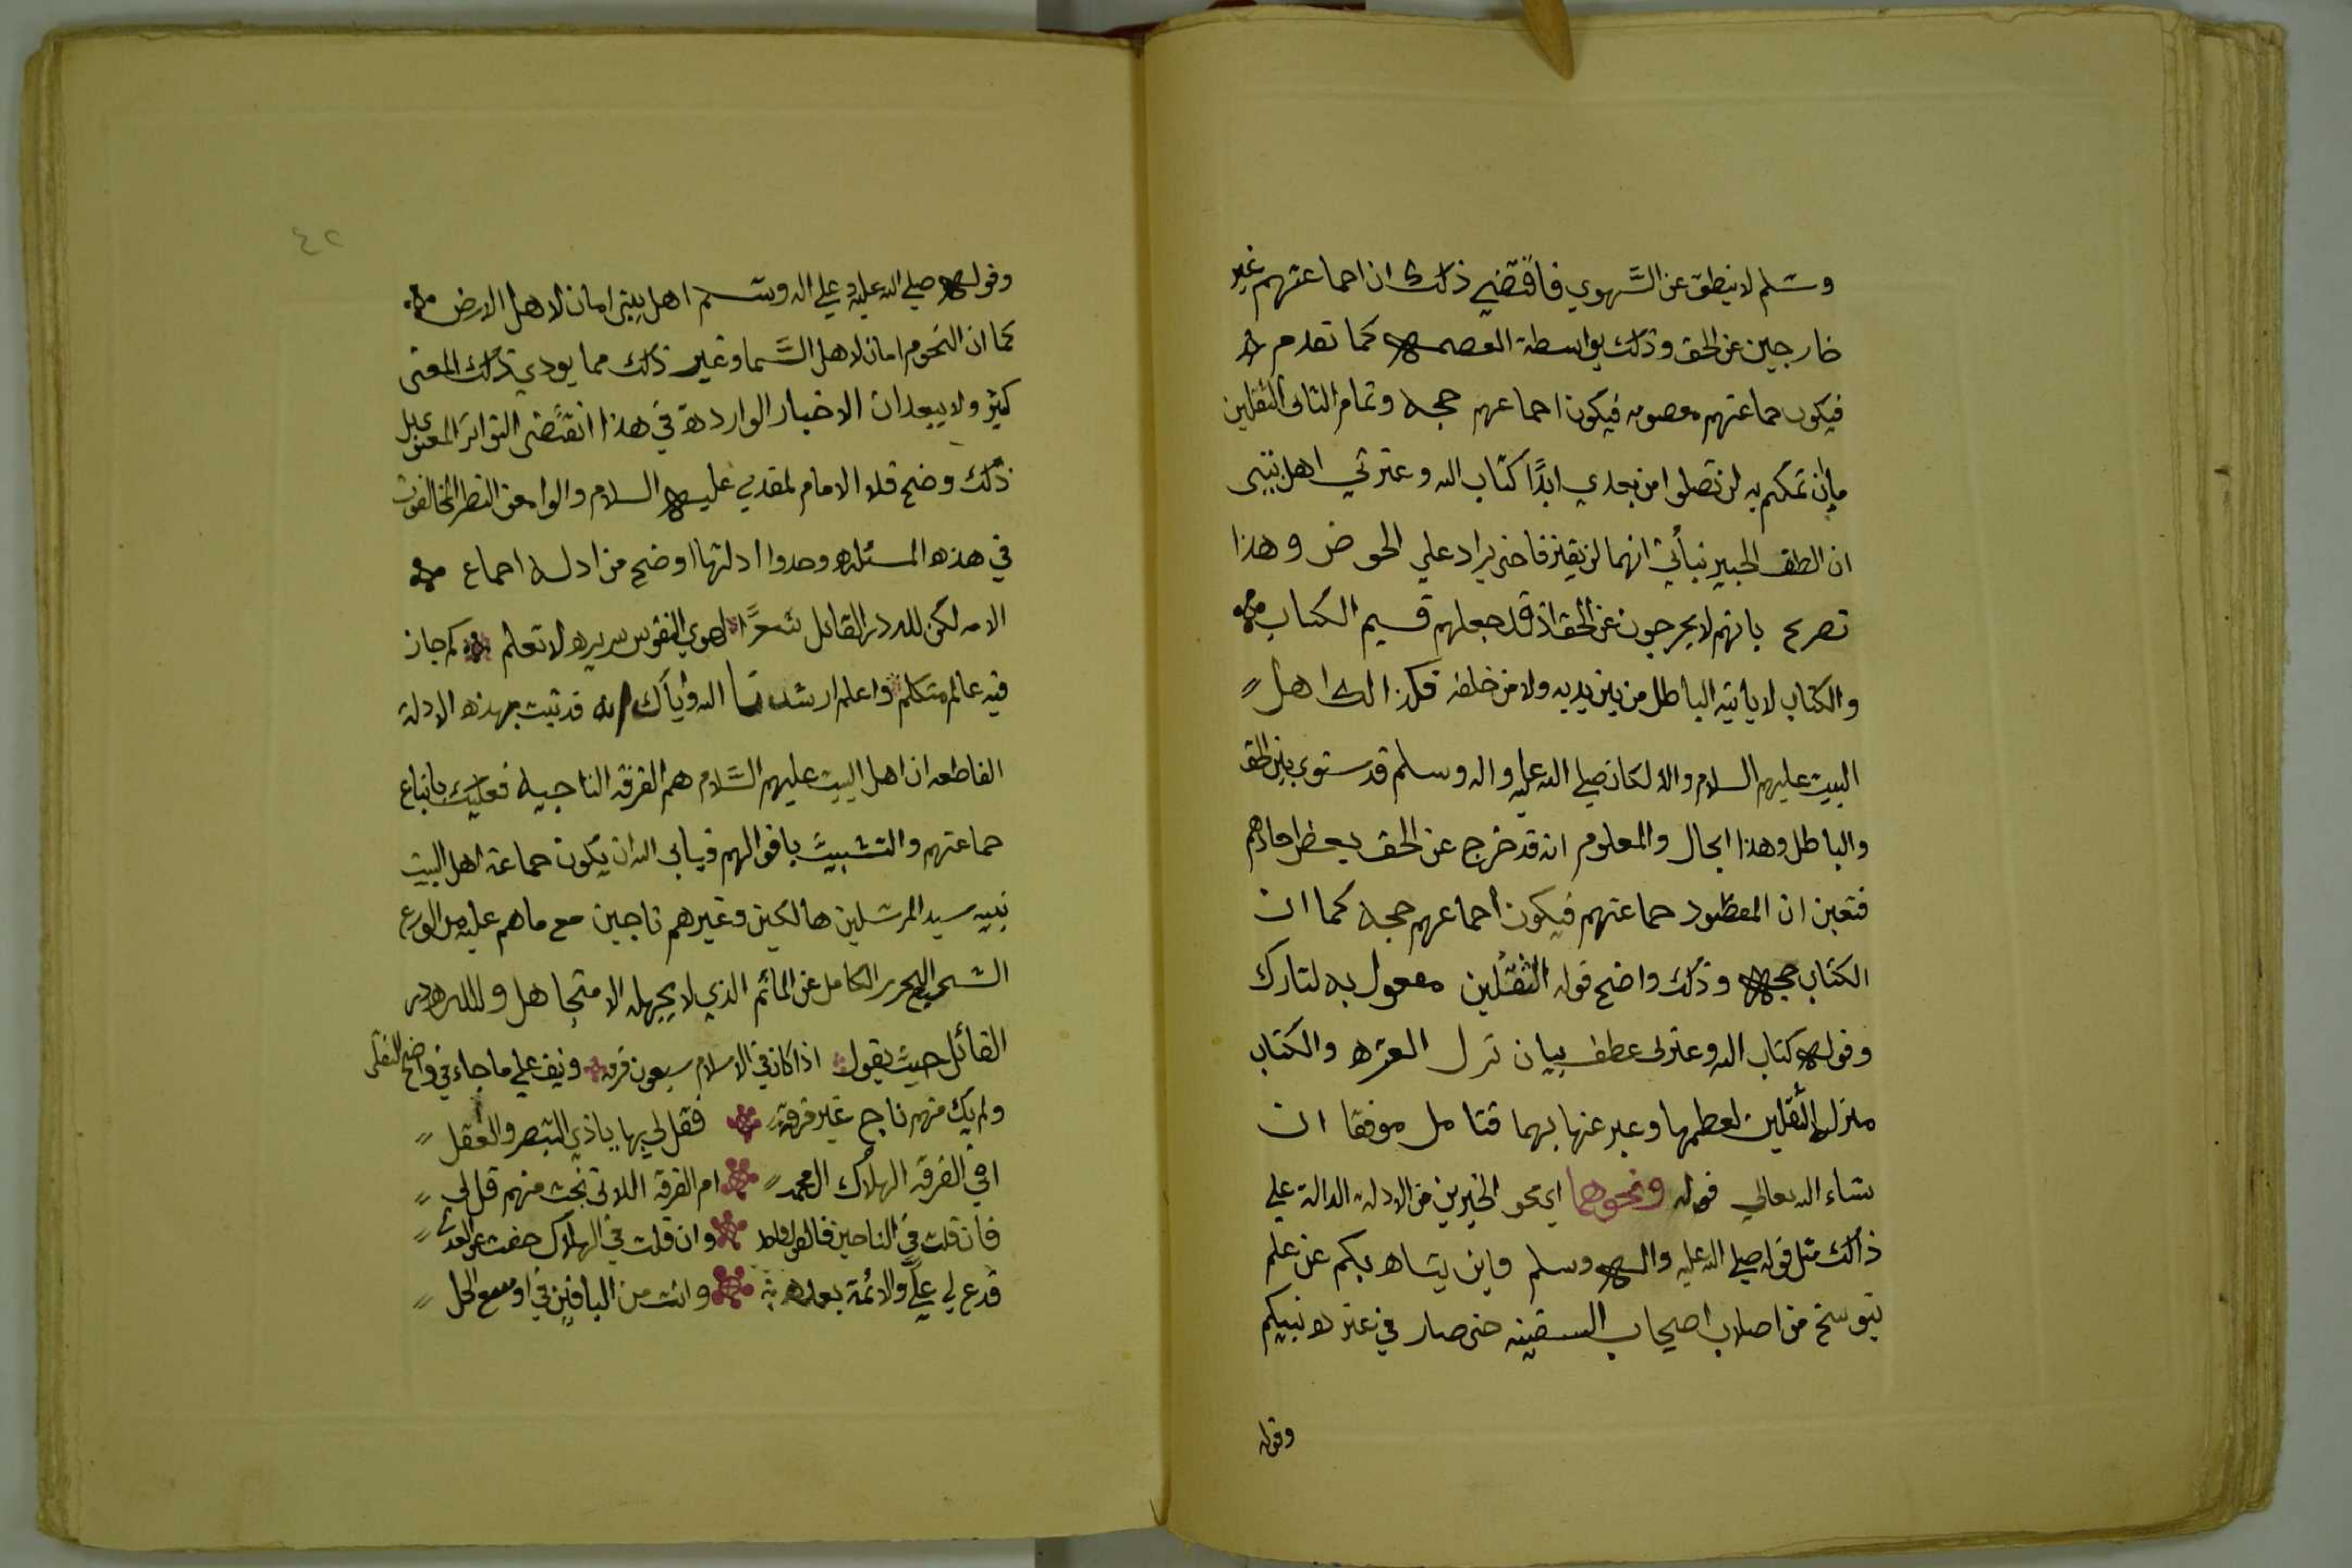 وسلم لا ينطق عن الهوي فاقتضي ذلك ان اجماعتهم غير
خارجين عن الحق وذلك بواسطة العصمه كما تقدم
فيكون جماعتهم معصومه فيكون اجماعهم حجه وتمام الثاني الثقلين
ما ان تمسكتم به لن تضلوا من بعدي ابدًا كتاب الله وعترتي اهل بيتي
ان الطف الخبير نبأني انهما لن يفترقا حتى يردا علي الحوض وهذا
تصريح بانهم لا يخرجون عن الحق اذ قد جعلهم قسيم الكتاب
والكتاب لا ياتيه الباطل من بين يديه ولا من خلفه فكذالك اهل
البيت عليهم السلام والا لكان صلي الله عليه واله وسلم قد ستوي بين الحق
والباطل وهذا ابحال والمعلوم انه قد خرج عن الحق بعض احادهم
فتعين ان المقصود جماعتهم فيكون اجماعهم حجه كما ان
الكتاب حجه وذلك واضح قوله الثقلين معمول به لتارك
وقوله كتاب الله وعترتي عطف بيان نزل العتره والكتاب
منزله الثقلين لعظمها وعبر عنها بهما فتامل موفقا ان
شاء الله تعالي قوله ونحوهما اي نحو الخبرين من الادله الدالة علي
ذالك مثل قوله صلي الله عليه واله وسلم فاين يتاه بكم عن علم
تنوسخ من اصلاب اصحاب السفينه حتى صار في عتره نبيكم
وقوله
٤٢
وقوله صلي الله عليه وعلي اله وسلم اهل بيتي امان لاهل الارض
كما ان النجوم امان لاهل السَّما وغير ذلك مما يودي ذلك المعنى
كثير ولا يبعد ان الاخبار الواردة في هذا اتقتضى التواتر المعنوي بل
ذلك وضح قلا الامام المهدي عليه السلام والوامعن النظر المخالفون
في هذه المسئله وجدوا ادلتها اوضح من ادله اجماع
الامه لكن لله در القائل شعرًا لهوي النفوس سريره لا تعلم كم حار
فيه عالم متكلم واعلم ارشدنا الله واياك انه قد ثبت بهذه الادلة
القاطعه ان اهل البيت عليهم السَّلام هم الفرقه الناجيه فعليك باتباع
جماعتهم والتشبيث باقوالهم ويابى الله ان يكون جماعة اهل البيت
نبيه سيد المرسلين هالكين وغيرهم ناجين مع ماهم عليه من الورع
الشحيح التحرر الكامل عن المائم الذي لا يجهله الا متجاهل ولله در
القائل حيث يقول اذا كان في الاسلام سبعون فرقه ونيف علي ما جاء في واضح النقل
ولم يك منهم ناج غير فرقة فقل لي بها ياذي التبصر والعقل
افي الفرقه الهلاك ال محمد ام الفرقه اللاتي نجت منهم قل لي
فان قلت في الناجين فالقول واحد وان قلت في الهلاك حفت عن العدل
فدع لي عليَّ والائمة بعده وانت من الباقين في اوسع الحل